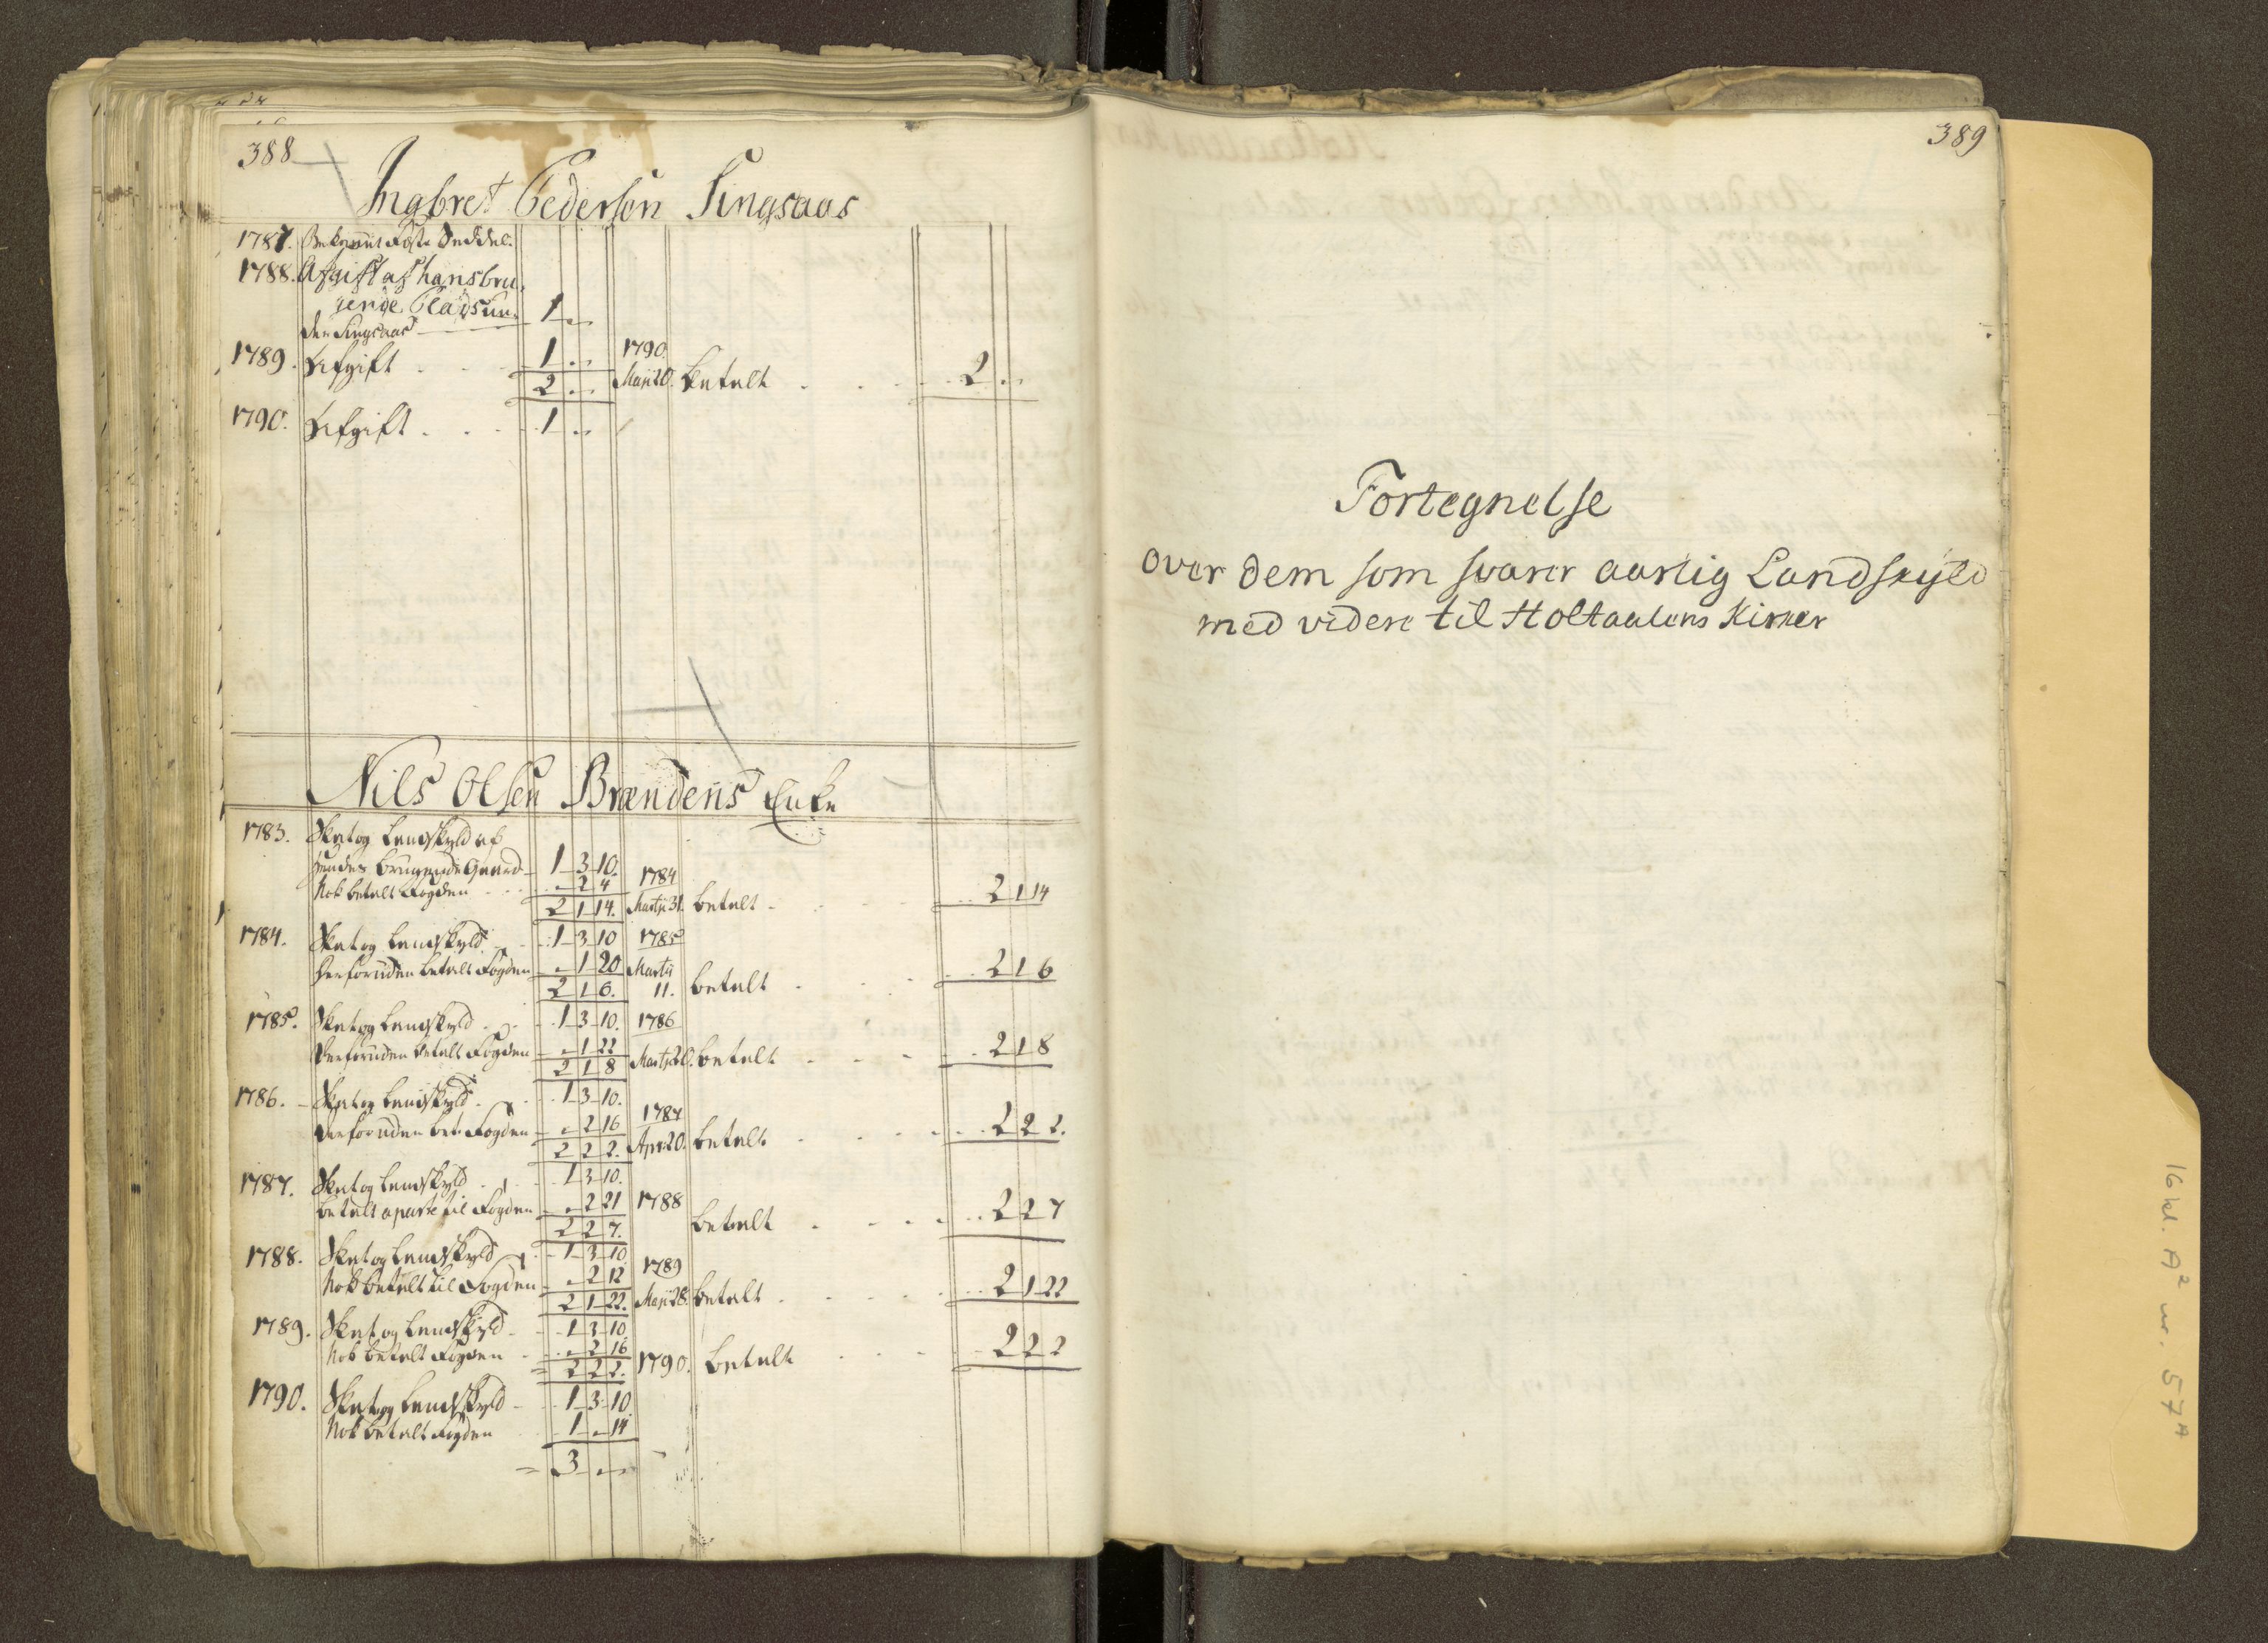 388
Ingbret Pedersen Singsaas
1787. Bekommet Fæste Seddel.
1788. Afgift af hans bru-
gende Plads un- 1 „ „
der Singsaas
1789. Afgift . . . 1 „ „ 1790
2 „ „ Maji 20. betalt . . . 2 „ „
1790. Afgift . . . 1 „ „
Nils Olsen Brændens Enke
1783. Skat og Landskyld af
hendes brugende Gaard 1 3 10.
Nok betalt Fogden . . . „ 2 4 1784
2 1 14. Martji 31. betalt . . . 2 1 14
1784. Skat og Landskyld . . 1 3 10 1785
herforuden betalt Fogden „ 1 20 Martii
2 1 6. 11. betalt . . . 2 1 6
1785. Skat og Landskyld . . 1 3 10. 1786
derforuden betalt Fogden „ 1 22
2 1 8 Martji 20. betalt . . . 2 1 8
1786. Skat og Landskyld . . 1 3 10.
derforuden bet. Fogden „ 2 16 1787
2 2 2. Apr. 20. betalt . . . 2 2 2.
1787. Skat og Landskyld . . 1 3 10.
betalt aparte til Fogden „ 2 21 1788
2 2 7. betalt . . . 2 2 7
1788. Skat og Landskyld . . 1 3 10
Nok betalt til Fogden „ 2 12 1789
2 1 22. Maji 28. betalt . . . 2 1 22
1789. Skat og Landskyld . . 1 3 10
Nok betalt Fogden . . „ 2 16
2 2 2. 1790. betalt . . . 2 2 2
1790. Skat og Landskyld . . 1 3 10
Nok betalt Fogden 1 „ 14
3 „ „
389
Fortegnelse
over dem som svarer aarlig Landskyld
med videre til Holtaalens Kirker
16 kl. A² nr. 57A